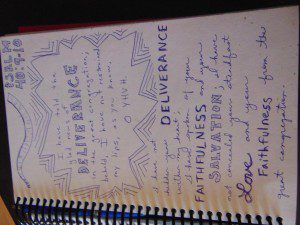 PSALM
40:9-10
I have told the
glad news of
DELIVERANCE
in the great congregation;
behold, I have not restrained
my lips, as you know,
O YHVH.
I have not
hidden your DELIVERANCE
within my heart
I have spoken of your
FAITHFULNESS and your
SALVATION; I have
not concealed your steadfast
Love and your
Faithfulness from the
great congregation.